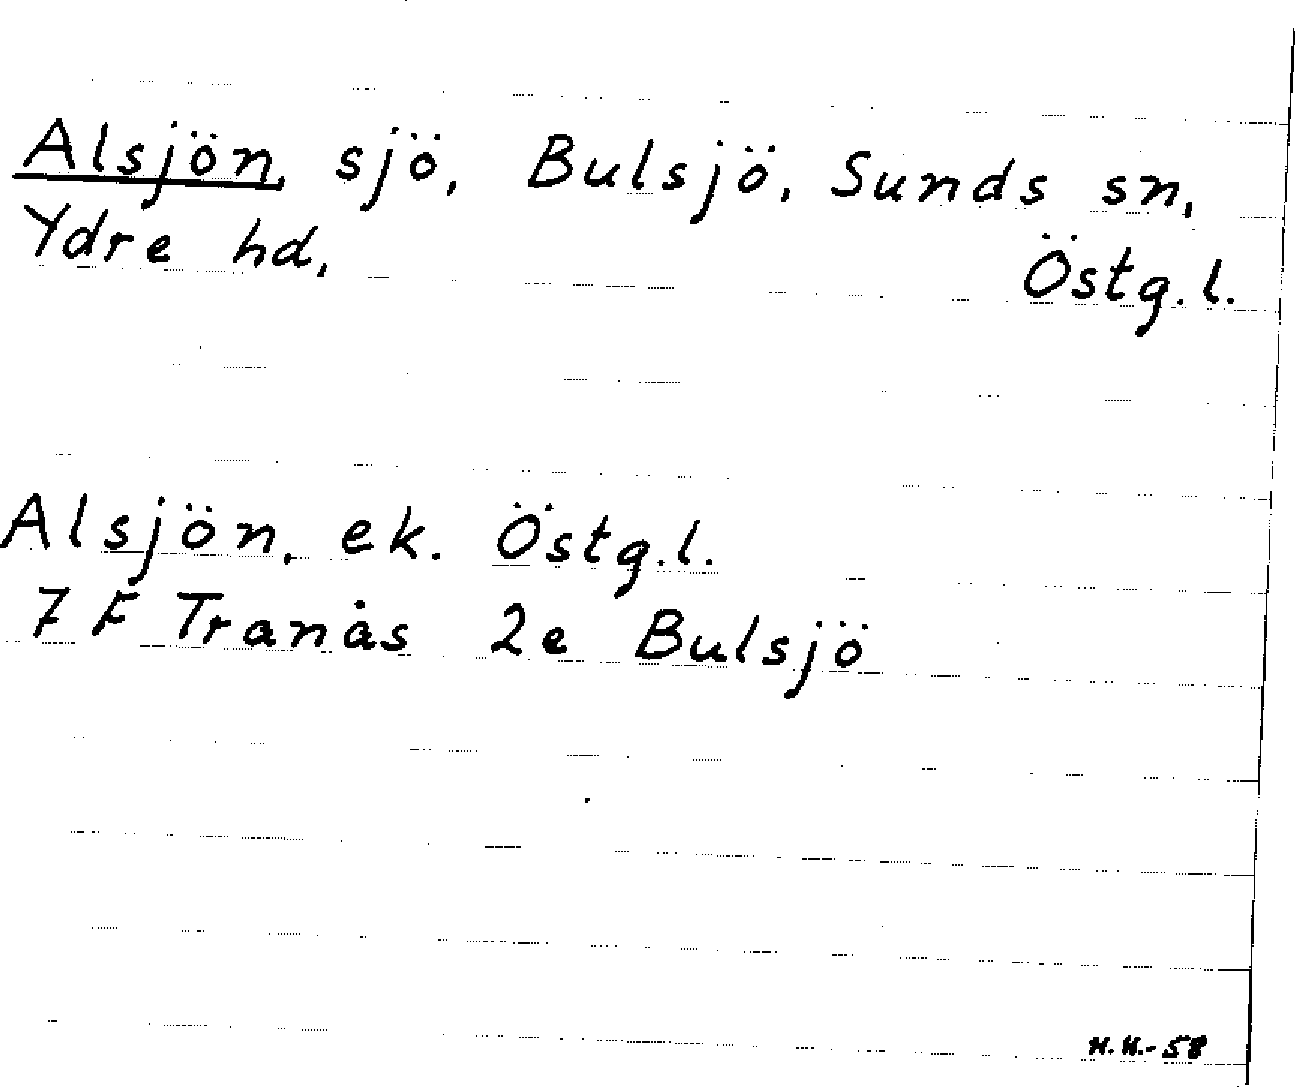 Alsjön, sjö, Bulsjö, Sunds sn,
Ydre hd, Östg.l.
Alsjön, ek. Östg.l.
7 F Tranås 2e Bulsjö
H.H.-58